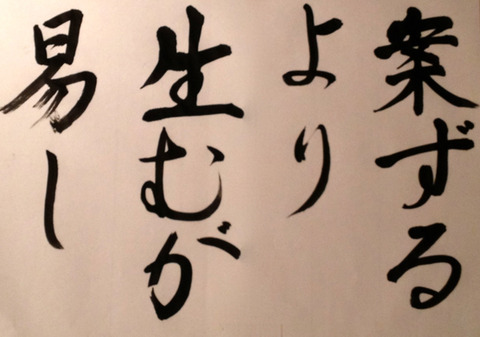 案ずる
より
生むが
易し